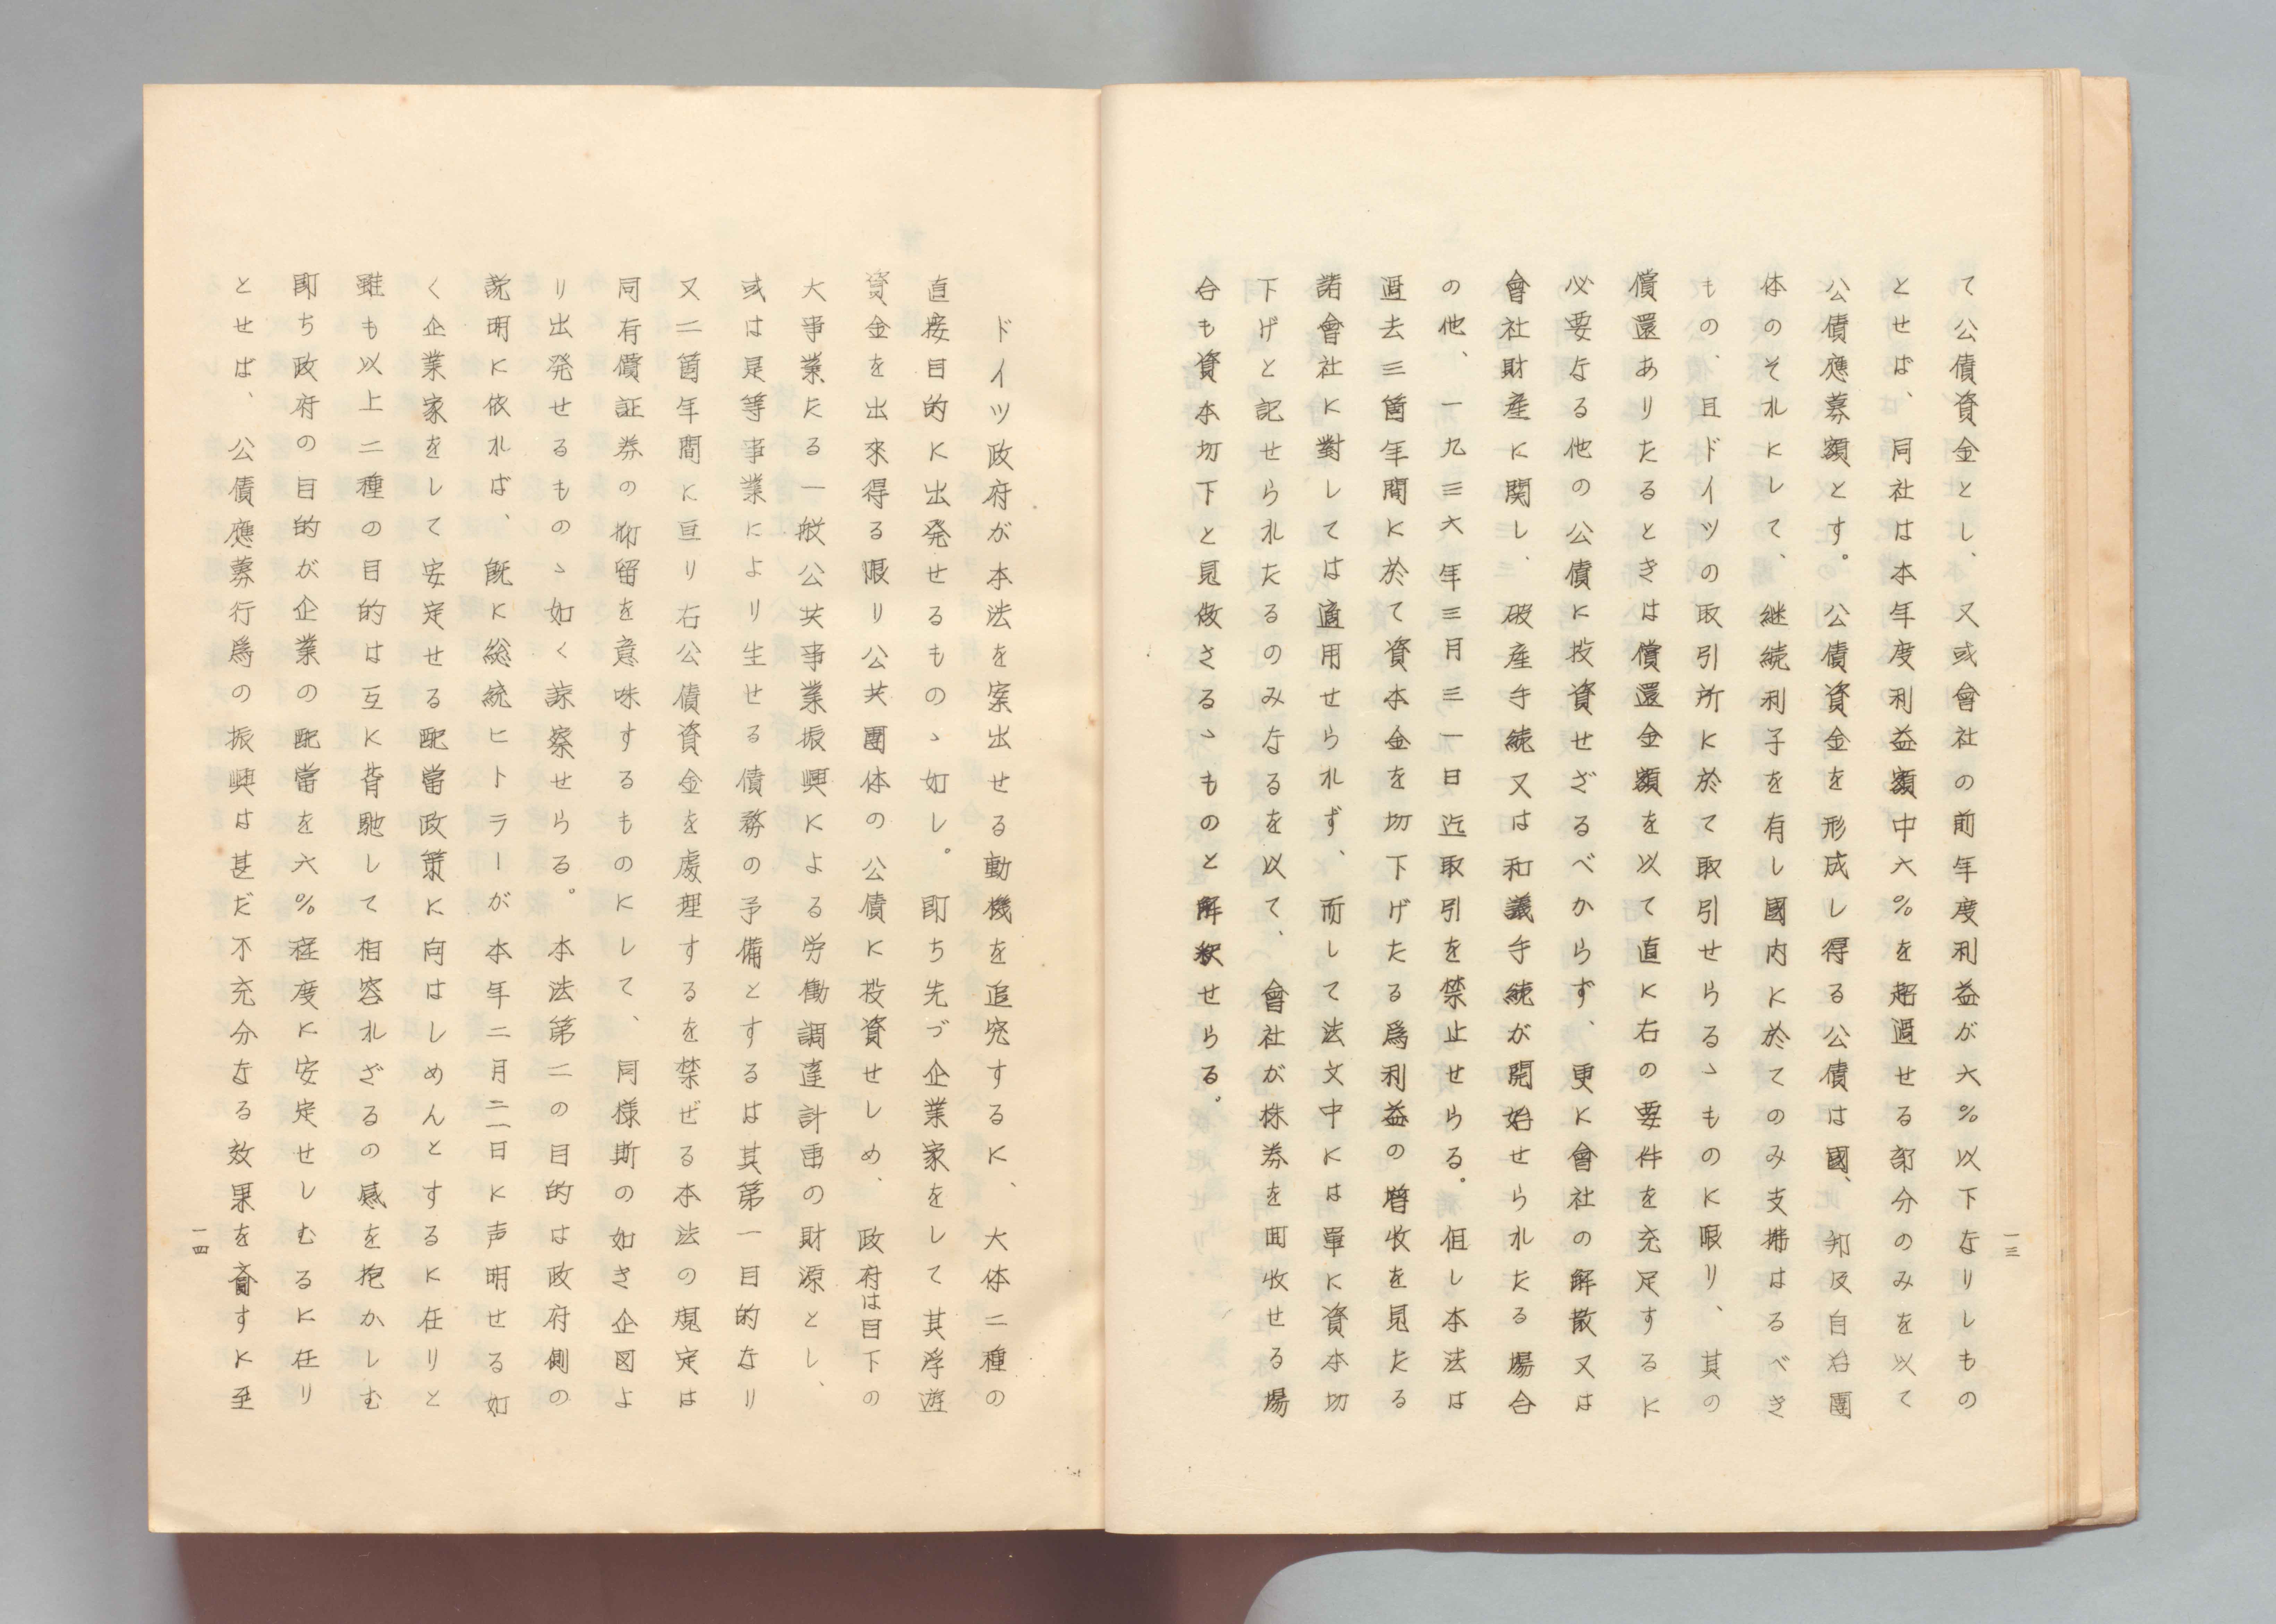 て公債資金とし、又或會社の前年度利益が六％以下なりしもの
とせば、同社は本年度利益額中六％を超過せる部分のみを以て
公債應募額とす。公債資金を形成し得る公債は國、邦及自治團
体のそれにして、継続利子を有し國内に於てのみ支拂はるべき
もの、且ドイツの取引所に於て取引せらるゝものに限り、其の
償還ありたるときは償還金額を以て直に右の要件を充足するに
必要なる他の公債に投資せざるべからず、更に會社の解散又は
會社財産に関し、破産手続又は和議手続が開始せられたる場合
の他、一九三六年三月三一日迄取引を禁止せらる。但し本法は
過去三箇年間に於て資本金を切下げたる爲利益の増收を見たる
諸會社に對しては適用せられず、而して法文中には單に資本切
下げと記せられたるのみなるを以て、會社が株券を回收せる場
合も資本切下と見做さるゝものと解釈せらる。
一三
ドイツ政府が本法を案出せる動機を追究するに、大体二種の
直接目的に出発せるものゝ如し。即ち先づ企業家をして其浮遊
資金を出來得る限り公共團体の公債に投資せしめ、政府は目下の
大事業たる一般公共事業振興による労働調達計画の財源とし、
或は是等事業により生せる債務の予備とするは其第一目的なり
又二箇年間に亘り右公債資金を處理するを禁ぜる本法の規定は
同有價証券の抑留を意味するものにして、同様斯の如き企図よ
り出発せるものゝ如く諒察せらる。本法第二の目的は政府側の
説明に依れば、既に総統ヒトラーが本年二月二一日に声明せる如
く企業家をして安定せる配當政策に向はしめんとするに在りと
雖も以上二種の目的は互に背馳して相容れざるの感を抱かしむ
即ち政府の目的が企業の配當を六％程度に安定せしむるに在り
とせば、公債應募行爲の振興は甚だ不充分なる效果を齎すに至
一四